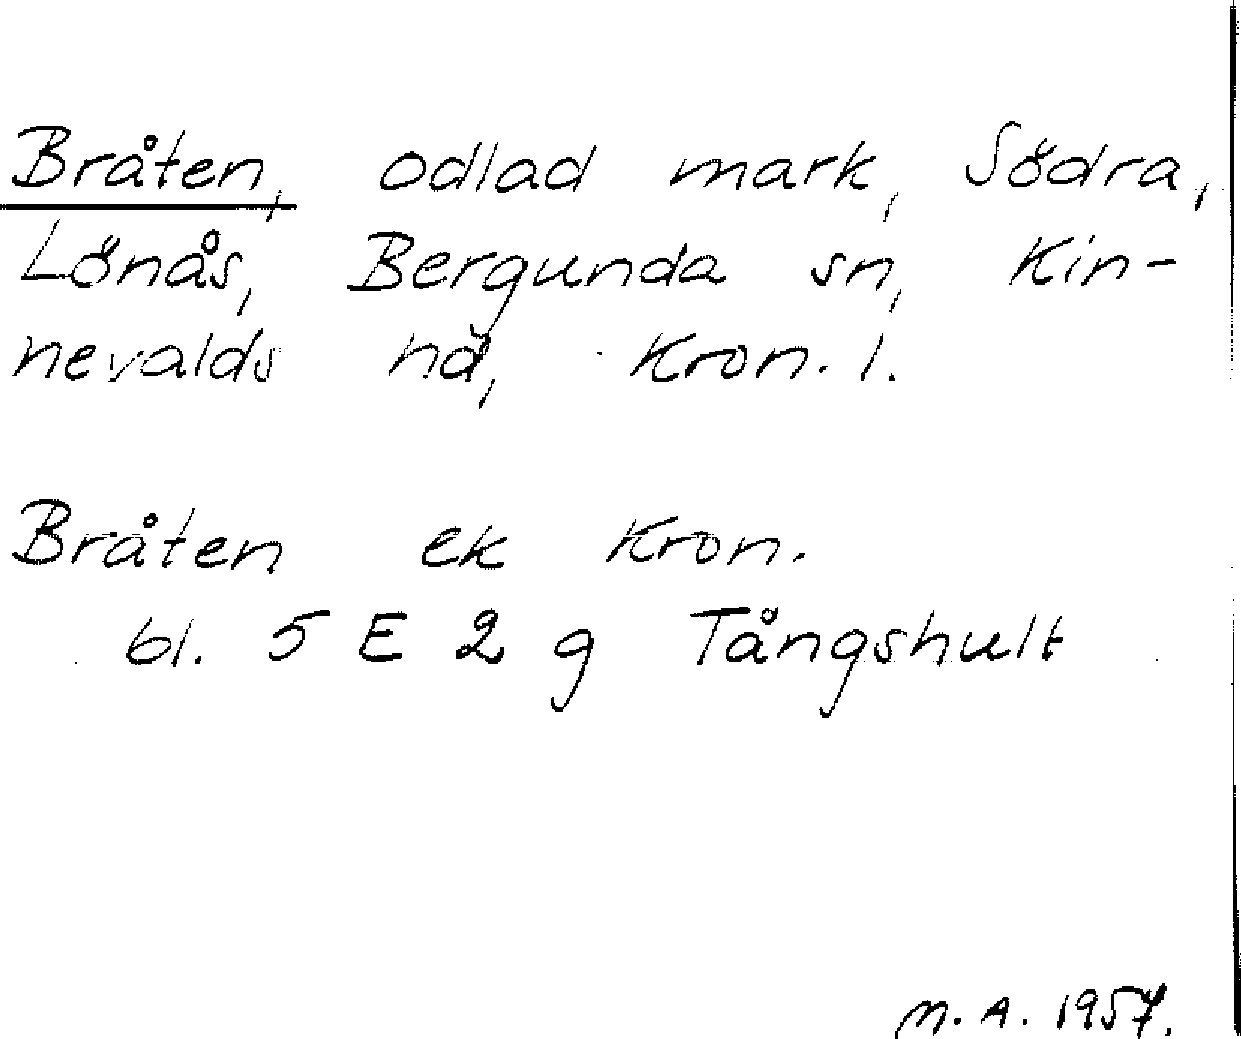 Bråten, odlad mark, Södra,
Lönås, Bergunda sn, Kin-
nevalds hd, Kron. l.
Bråten ek Kron.
bl. 5 E 2 g Tångshult
M. A. 1957.